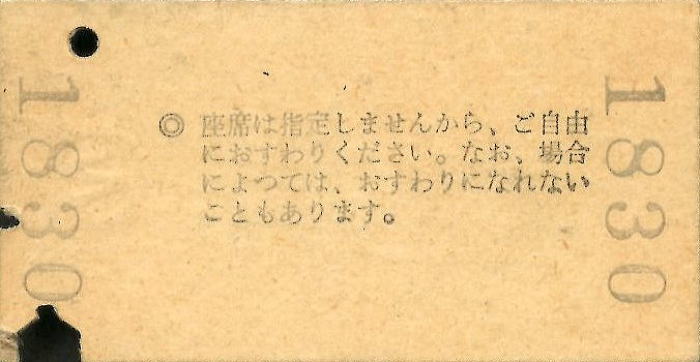 1830
◎ 座席は指定しませんから、ご自由
におすわりください。なお、場合
によつては、おすわりになれない
こともあります。
1830